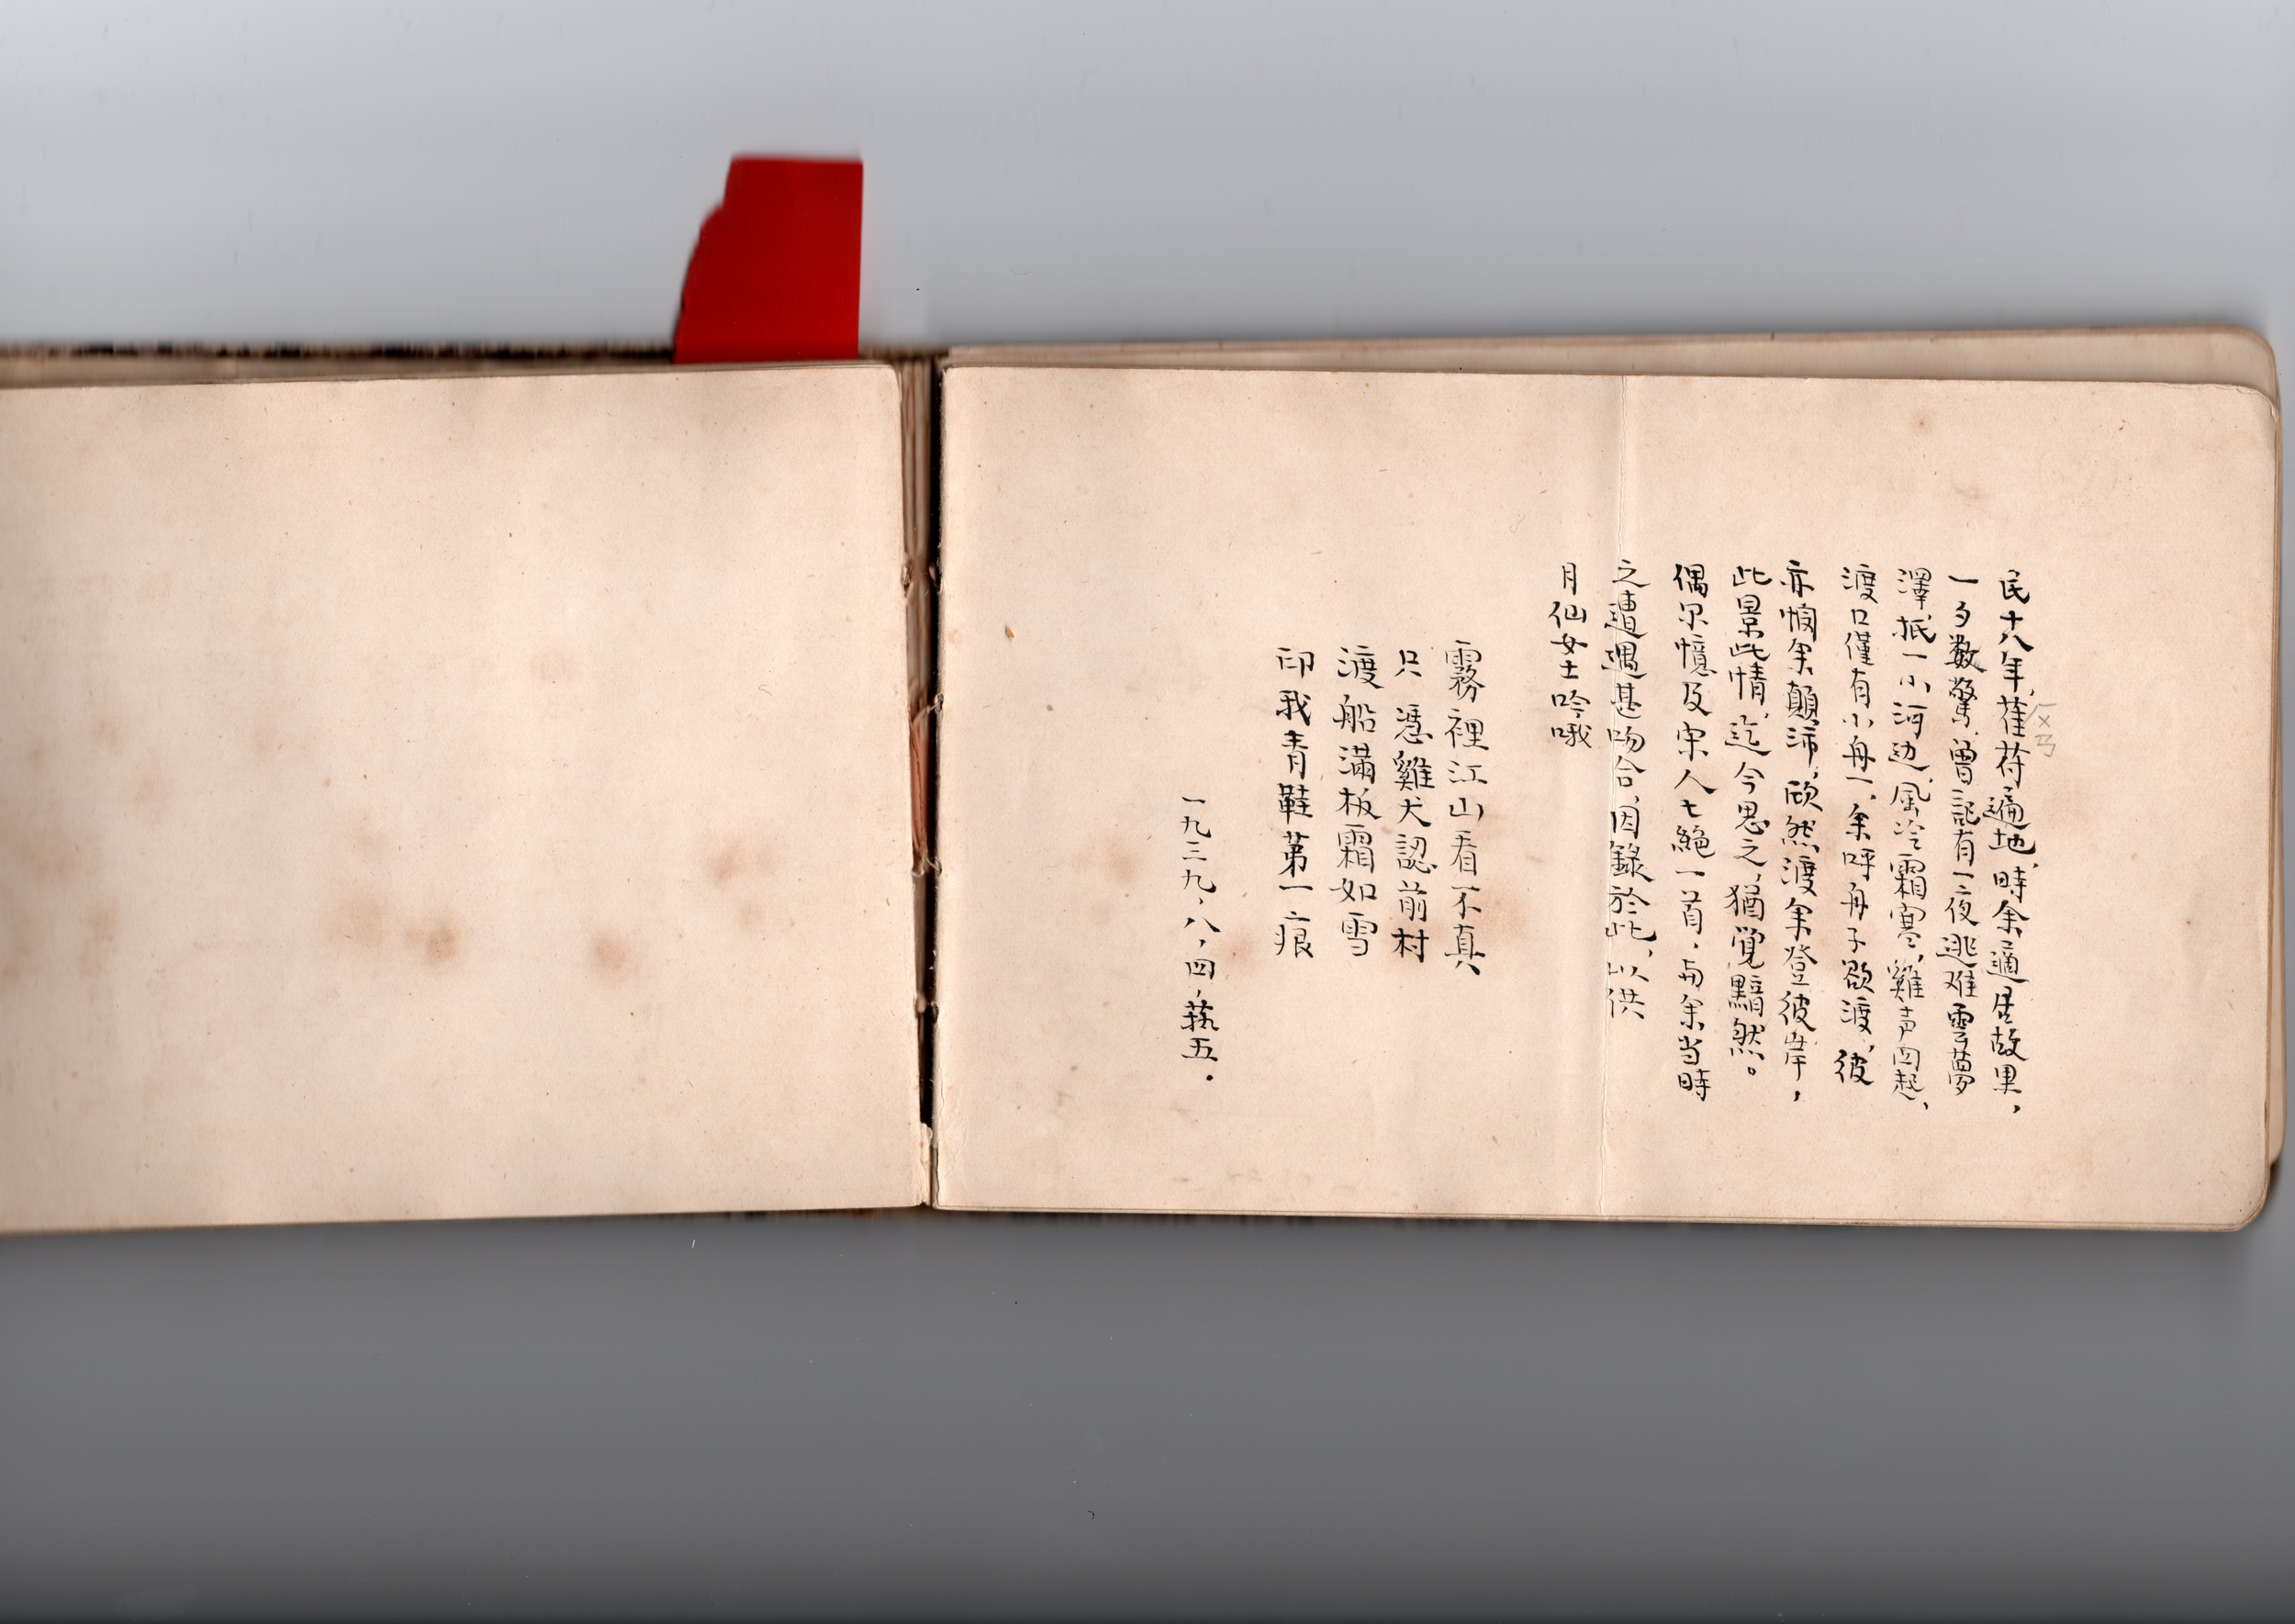 民十八年，萑苻遍地，時余適居故里，
一夕数驚，曾記有一夜逃难雲夢
澤，抵一小河边，風冷霜寒，雞声四起，
渡口僅有小舟一，余呼舟子欲渡，彼
亦憫余顛沛，欣然渡余登彼岸，
此景此情，迄今思之，猶覺黯然。
偶尔憶及宋人七絕一首，与余当時
之遭遇甚吻合，因錄於此，以供
月仙女士吟哦
霧裡江山看不真
只憑雞犬認前村
渡船滿板霜如雪
印我青鞋第一痕
一九三九，八，四，蓺五。
ㄏㄨㄢ